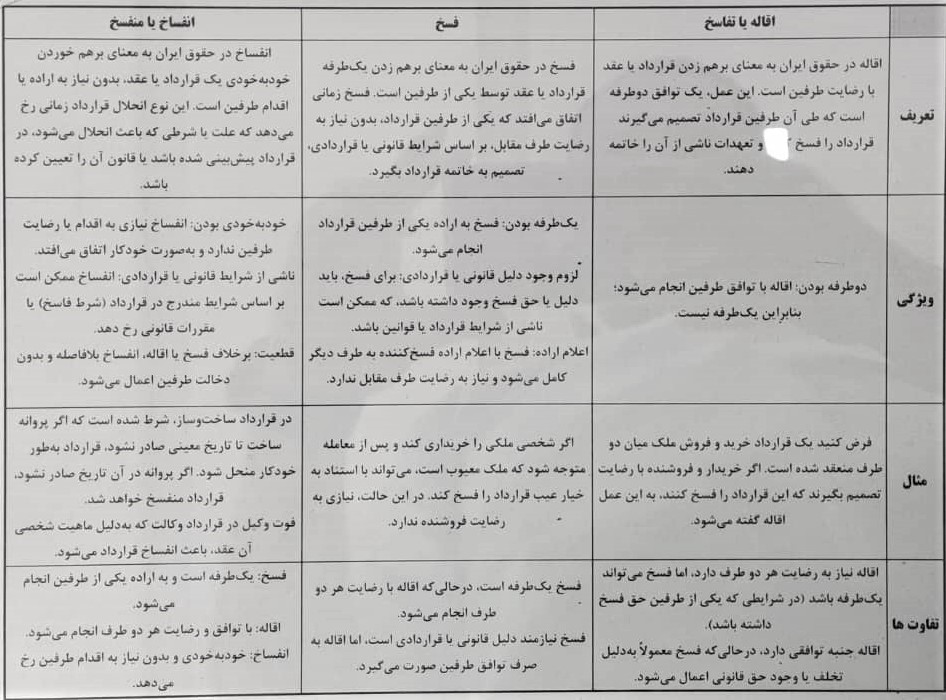 اقاله یا تفاسخ
فسخ
انفساخ یا منفسخ
تعریف
اقاله در حقوق ایران به معنای برهم زدن قرارداد یا عقد
با رضایت طرفین است. این عمل، یک توافق دوطرفه
است که طی آن طرفین قرارداد تصمیم می‌گیرند
قرارداد را فسخ و تعهدات ناشی از آن را خاتمه
دهند.
فسخ در حقوق ایران به معنای برهم زدن یک‌طرفه
قرارداد یا عقد توسط یکی از طرفین است. فسخ زمانی
اتفاق می‌افتد که یکی از طرفین قرارداد، بدون نیاز به
رضایت طرف مقابل، بر اساس شرایط قانونی یا قراردادی،
تصمیم به خاتمه قرارداد بگیرد.
انفساخ در حقوق ایران به معنای برهم خوردن
خودبه‌خودی یک قرارداد یا عقد، بدون نیاز به اراده یا
اقدام طرفین است. این نوع انحلال قرارداد زمانی رخ
می‌دهد که علت یا شرطی که باعث انحلال می‌شود، در
قرارداد پیش‌بینی شده باشد یا قانون آن را تعیین کرده
باشد.
ویژگی
دوطرفه بودن: اقاله با توافق طرفین انجام می‌شود؛
بنابراین یک‌طرفه نیست.
یک‌طرفه بودن: فسخ به اراده یکی از طرفین قرارداد
انجام می‌شود.
لزوم وجود دلیل قانونی یا قراردادی: برای فسخ، باید
دلیل یا حق فسخ وجود داشته باشد، که ممکن است
ناشی از شرایط قرارداد یا قوانین باشد.
اعلام اراده: فسخ با اعلام اراده فسخ‌کننده به طرف دیگر
کامل می‌شود و نیاز به رضایت طرف مقابل ندارد.
خودبه‌خودی بودن: انفساخ نیازی به اقدام یا رضایت
طرفین ندارد و به‌صورت خودکار اتفاق می‌افتد.
ناشی از شرایط قانونی یا قراردادی: انفساخ ممکن است
بر اساس شرایط مندرج در قرارداد (شرط فاسخ) یا
مقررات قانونی رخ دهد.
قطعیت: برخلاف فسخ یا اقاله، انفساخ بلافاصله و بدون
دخالت طرفین اعمال می‌شود.
مثال
فرض کنید یک قرارداد خرید و فروش ملک میان دو
طرف منعقد شده است. اگر خریدار و فروشنده با رضایت
تصمیم بگیرند که این قرارداد را فسخ کنند، به این عمل
اقاله گفته می‌شود.
اگر شخصی ملکی را خریداری کند و پس از معامله
متوجه شود که ملک معیوب است، می‌تواند با استناد به
خیار عیب قرارداد را فسخ کند. در این حالت، نیازی به
رضایت فروشنده ندارد.
در قرارداد ساخت‌وساز، شرط شده است که اگر پروانه
ساخت تا تاریخ معینی صادر نشود، قرارداد به‌طور
خودکار منحل شود. اگر پروانه در آن تاریخ صادر نشود،
قرارداد منفسخ خواهد شد.
فوت وکیل در قرارداد وکالت که به‌دلیل ماهیت شخصی
آن عقد، باعث انفساخ قرارداد می‌شود.
تفاوت ها
اقاله نیاز به رضایت هر دو طرف دارد، اما فسخ می‌تواند
یک‌طرفه باشد (در شرایطی که یکی از طرفین حق فسخ
داشته باشد).
اقاله جنبه توافقی دارد، درحالی‌که فسخ معمولاً به‌دلیل
تخلف یا وجود حق قانونی اعمال می‌شود.
فسخ یک‌طرفه است، درحالی‌که اقاله با رضایت هر دو
طرف انجام می‌شود.
فسخ نیازمند دلیل قانونی یا قراردادی است، اما اقاله به
صرف توافق طرفین صورت می‌گیرد.
فسخ: یک‌طرفه است و به اراده یکی از طرفین انجام
می‌شود.
اقاله: با توافق و رضایت هر دو طرف انجام می‌شود.
انفساخ: خودبه‌خودی و بدون نیاز به اقدام طرفین رخ
می‌دهد.